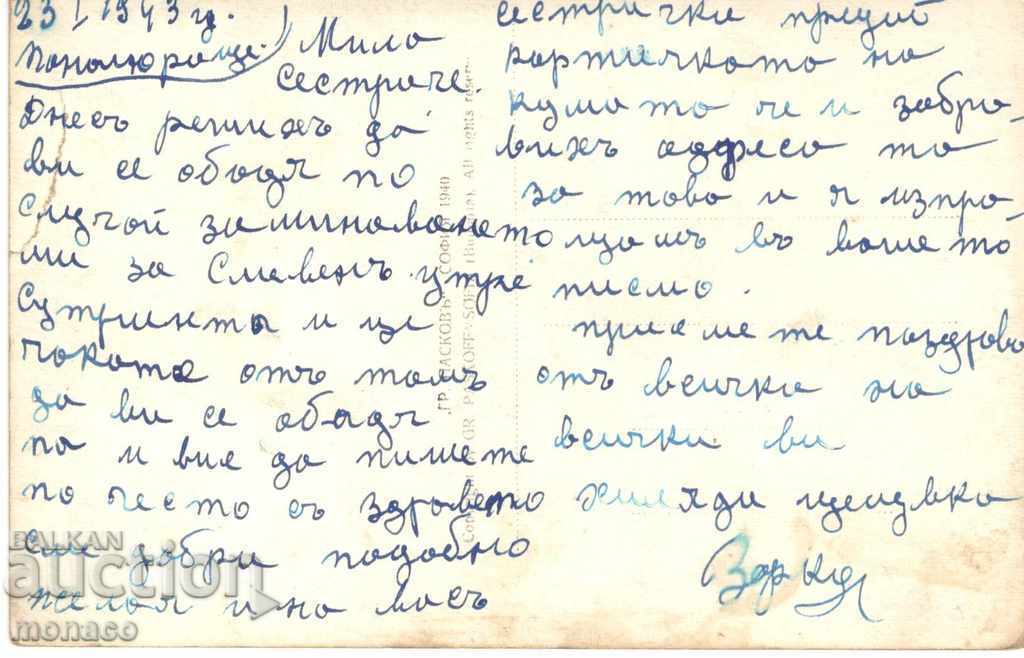 23 I 1943 г.
Панагюрище. Мила
сестриче.
Днесъ решихъ да
ви се обадя по
случай заминаването
ми за Сливенъ утре
сутринта и ще
чокоте отъ тамъ
да ви се обадя
па и вие да пишете
по често съ здравето
сме добри подобно
желая и на васъ
сестричке предай
картичката на
кумата че и забра-
вихъ адреса та
за това и я изпра-
щамъ въ вашето
писмо.
приемете поздравъ
отъ всички на
всички ви
хиляди целувки
Зорка
"ГР. ПАСКОВЪ" СОФИЯ 1940
Copyright by GR. PASKOFF - SOFIA (Bulgaria). All rights reserv
BALKAN
auction
monaco